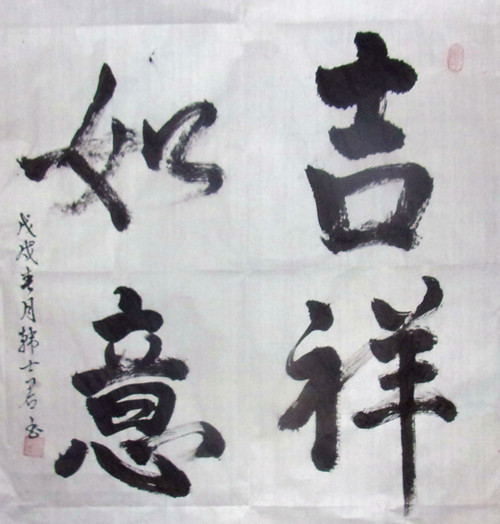 吉祥
如意
戊戌春月韩士君书